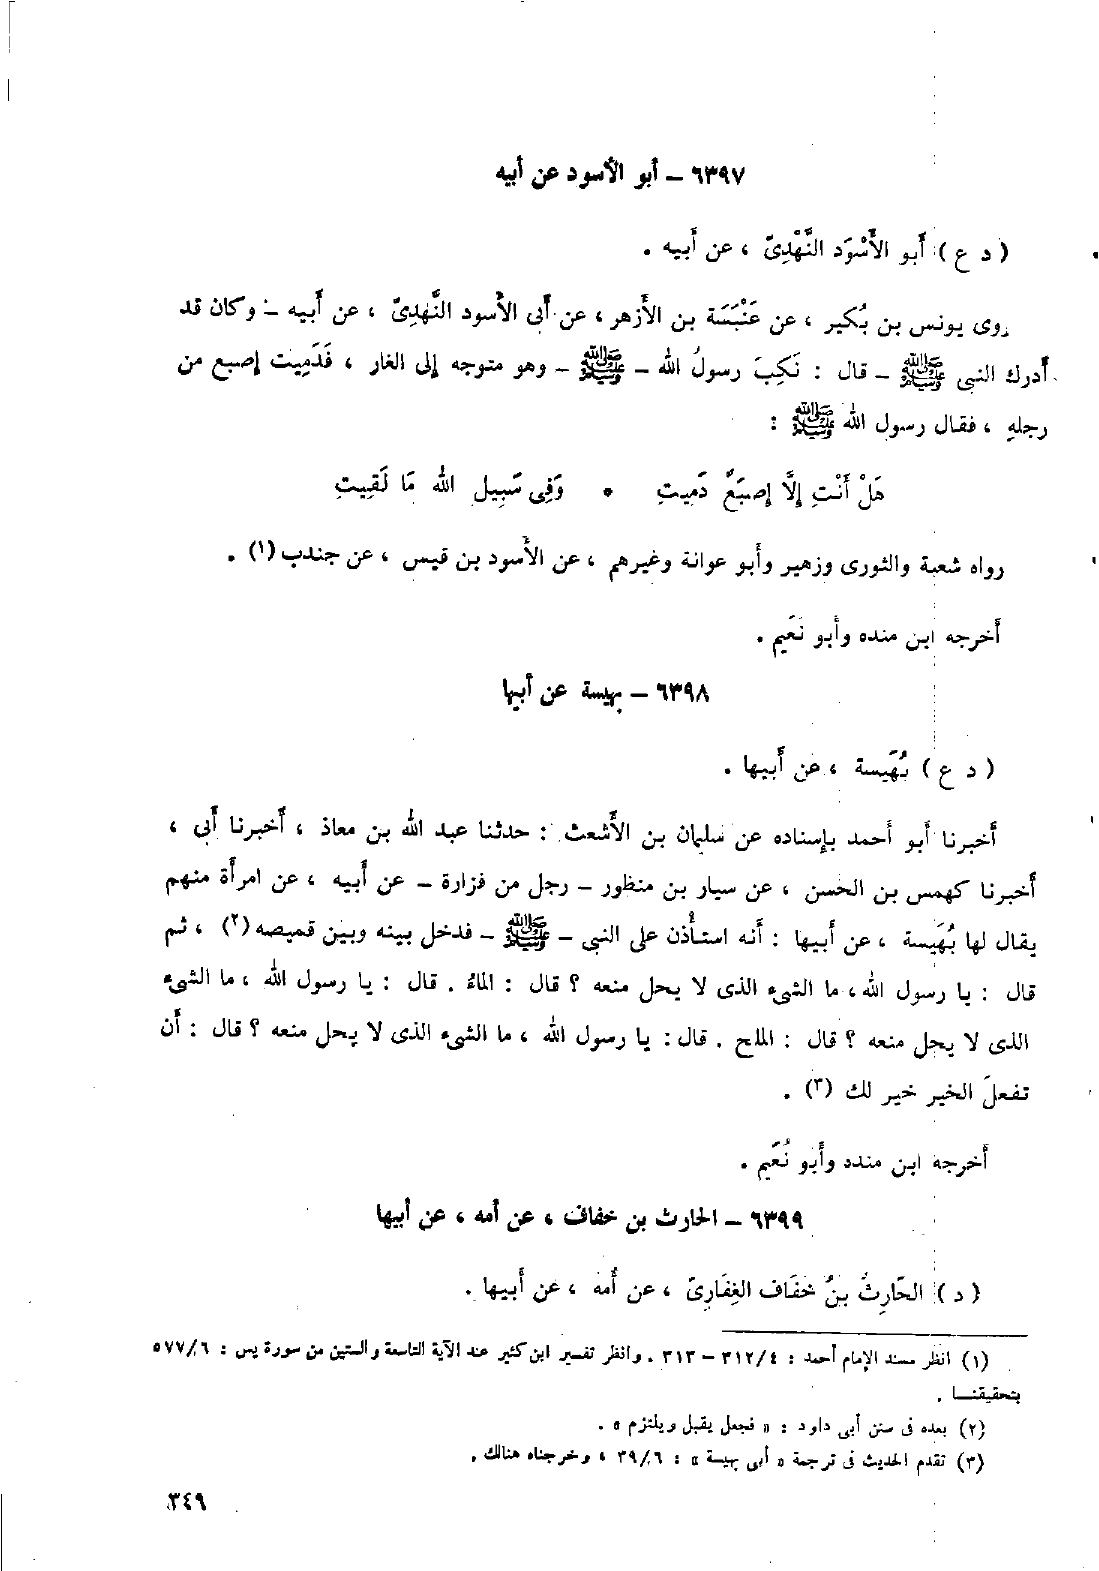 ٦٣٩٧ – أبو الأسود عن أبيه
( د ع ) أَبو الأَسْوَد النَّهْدِىّ ، عن أَبيه .
روى يونس بن بُكير ، عن عَنْبَسَة بن الأَزهر ، عن أَبى الأَسود النَّهْدِىّ ، عن أَبيه – وكان قد
أَدرك النبى ﷺ – قال : نَكِبَ رسولُ الله – ﷺ – وهو متوجه إلى الغار ، فَدَمِيت إصبع من
رجلهِ ، فقال رسول الله ﷺ :
هَلْ أَنْتِ إِلَّا إصبَعٌ دَمِيتِ * وَفِى سَبِيل الله مَا لَقِيتِ
رواه شعبة والثورى وزهير وأَبو عوانة وغيرهم ، عن الأَسود بن قيس ، عن جندب (١) .
أَخرجه ابن منده وأَبو نُعَيم .
٦٣٩٨ – بهيسة عن أبيها
( د ع ) بُهَيسة ، عن أَبيها .
أَخبرنا أَبو أَحمد بإسناده عن سليمان بن الأَشعث : حدثنا عبد الله بن معاذ ، أَخبرنا أَبى ،
أَخبرنا كهمس بن الحسن ، عن سيار بن منظور – رجل من فزارة – عن أَبيه ، عن امرأَة منهم
يقال لها بُهَيسة ، عن أَبيها : أَنه استأْذن على النبى – ﷺ – فدخل بينه وبين قميصه (٢) ، ثم
قال : يا رسول الله ، ما الشىء الذى لا يحل منعه ؟ قال : الماءُ . قال : يا رسول الله ، ما الشىء
الذى لا يحل منعه ؟ قال : الملح . قال : يا رسول الله ، ما الشىء الذى لا يحل منعه ؟ قال : أَن
تفعلَ الخير خير لك (٣) .
أَخرجه ابن منده وأَبو نُعَيم .
٦٣٩٩ – الحارث بن خفاف ، عن أمه ، عن أبيها
( د ) الحَارِثُ بنُ خفَاف الغِفَارِىّ ، عن أُمه ، عن أَبيها .
(١) انظر مسند الإمام أحمد : ٣١٢/٤ – ٣١٣ . وانظر تفسير ابن كثير عند الآية التاسعة والستين من سورة يس : ٥٧٧/٦
بتحقيقنا .
(٢) بعده فى سنن أبى داود : « فجعل يقبل ويلتزم » .
(٣) تقدم الحديث فى ترجمة « أبى بهيسة » : ٣٩/٦ ، وخرجناه هنالك .
٣٤٩